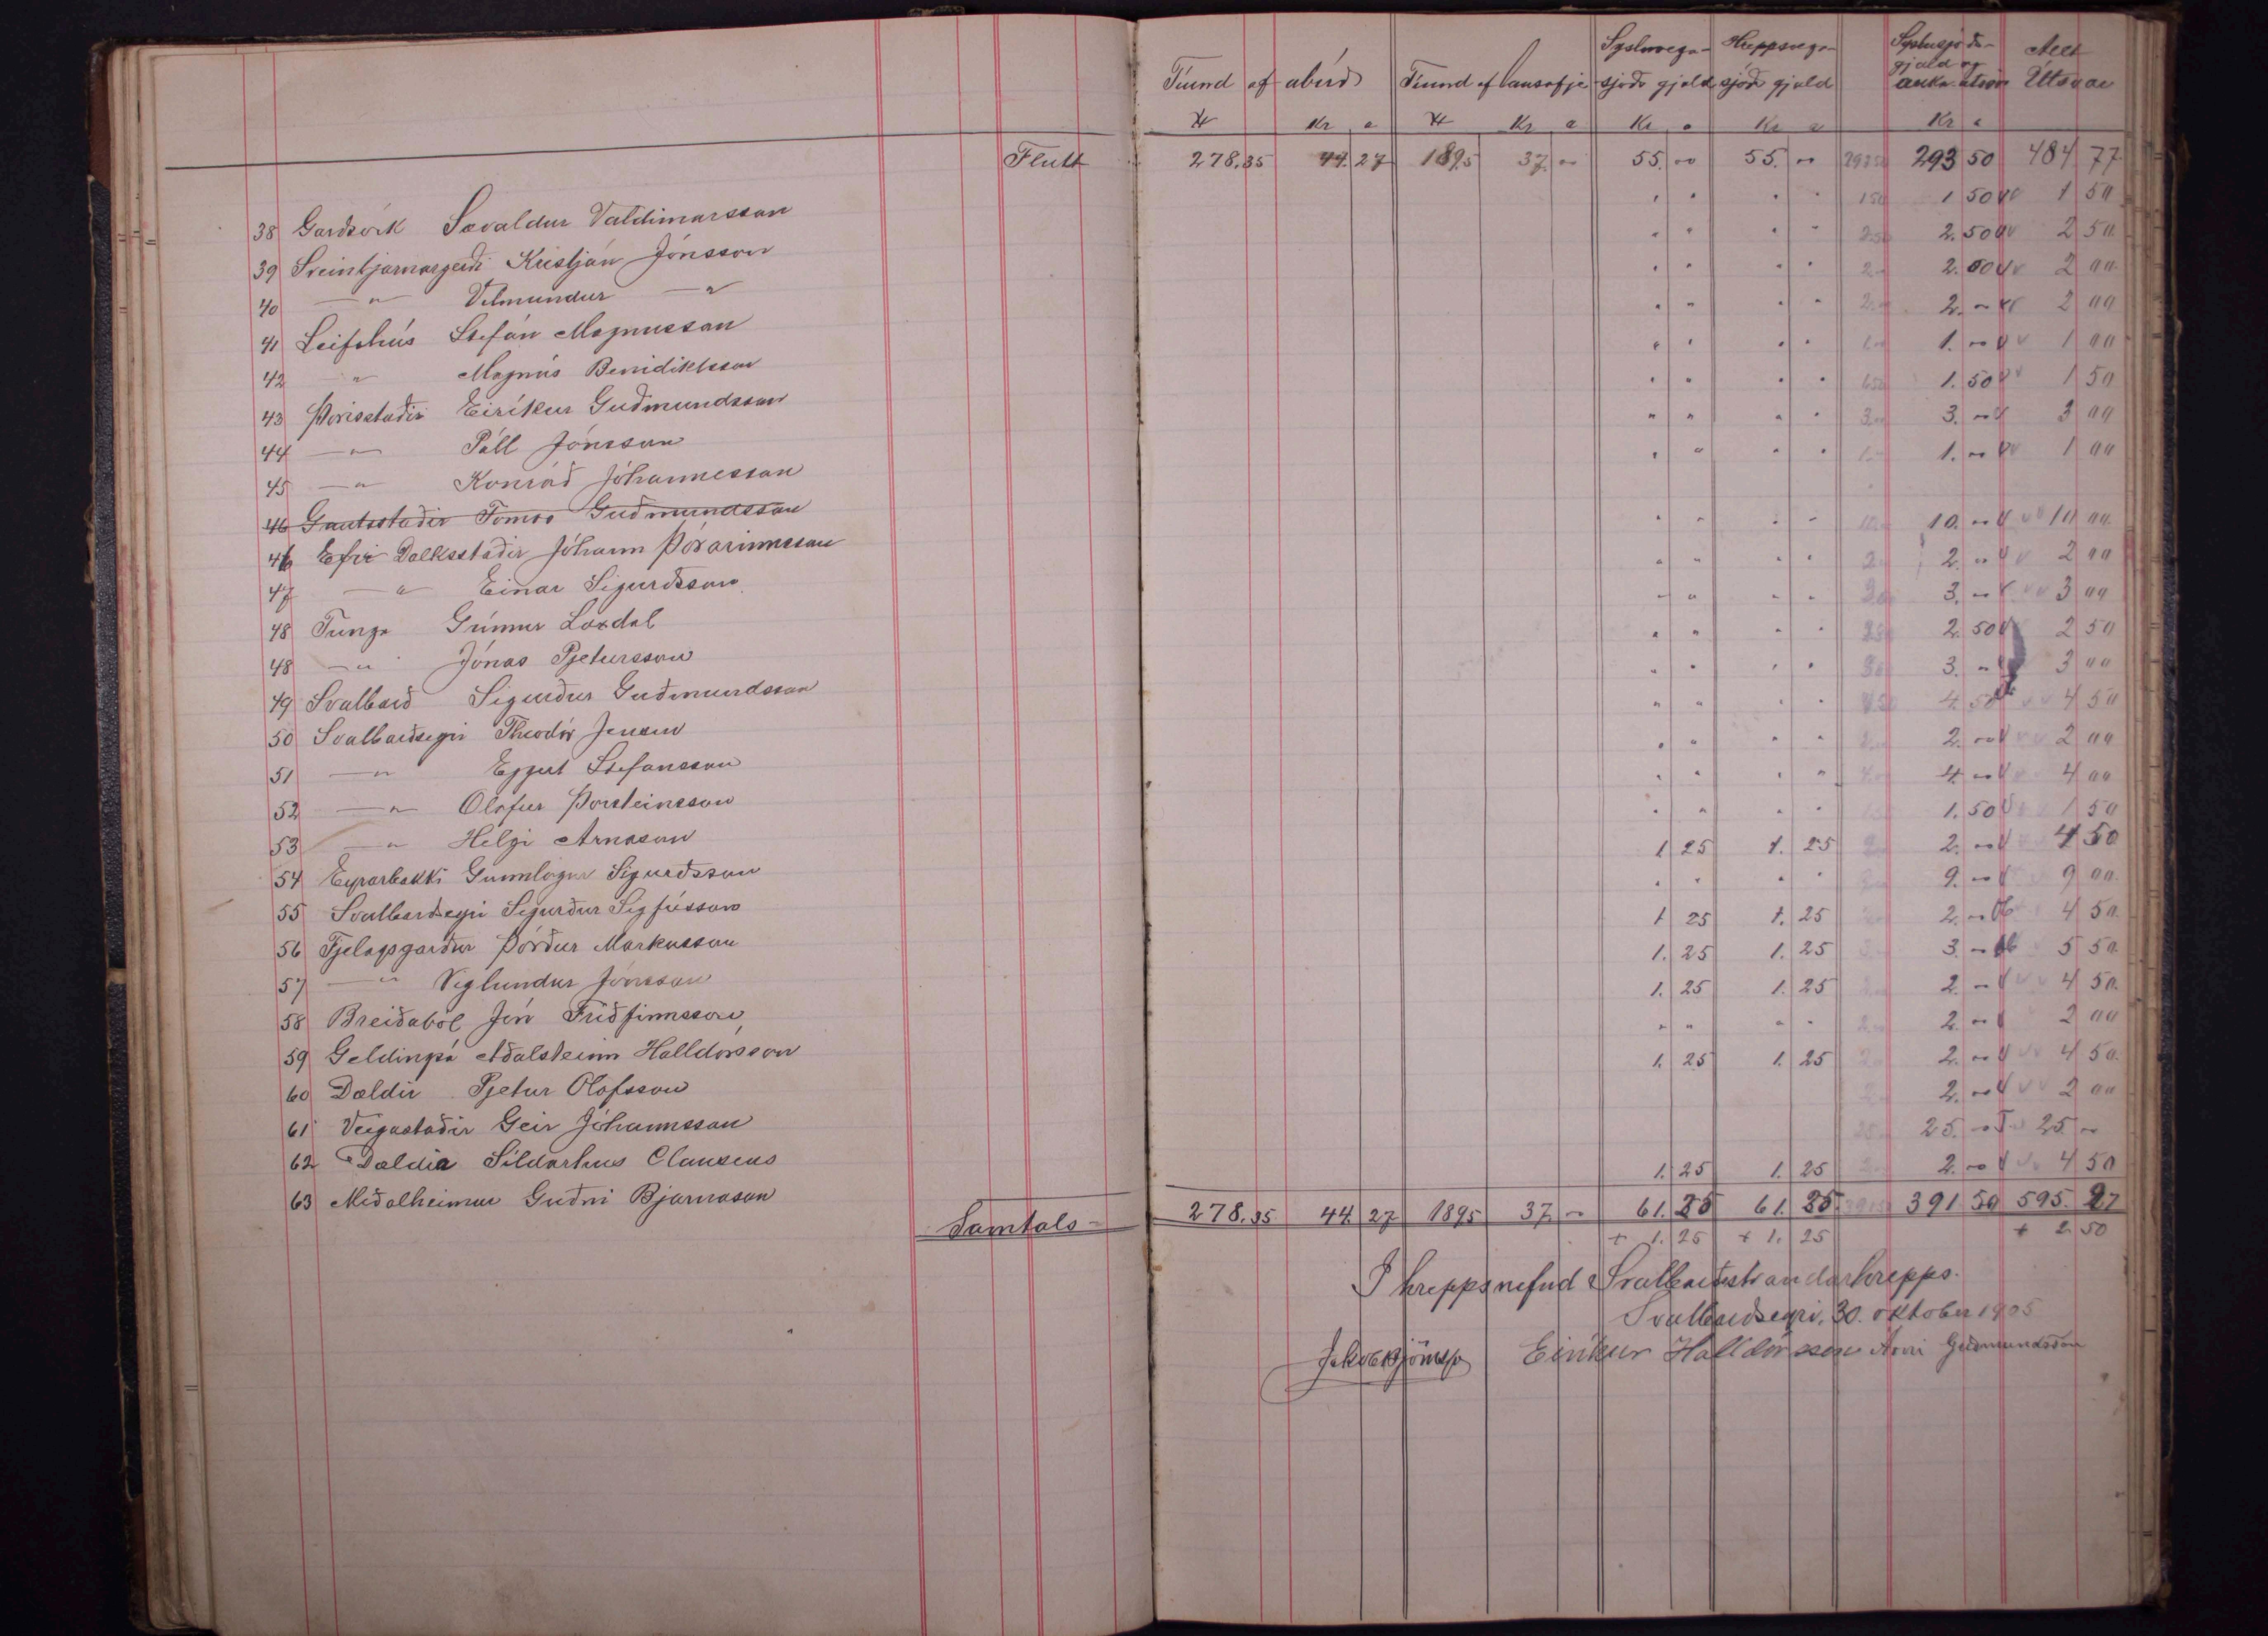 Flutt
38 Garðsvík Sævaldur Valdimarsson
39 Sveinbjarnargerði Kristján Jónsson
40 —"— Vilmundur —"
41 Leifshús Stefán Magnusson
42 " Magnús Benidiktsson
43 Þórisstaðir Eiríkur Guðmundsson
44 —"— Páll Jónsson
45 —"— Konráð Jóhannesson
46 Gautsstaðir Tomas Guðmundsson
46 Efri Dalksstaðir Jóhann Þórarinnsson
47 —"— Einar Sigurðsson
48 Tunga Grímur Laxdal
48 —"— Jónas Pjetursson
49 Svalbarð Sigurður Guðmundsson
50 Svalbarðseyri Theodór Jensen
51 —"— Eggert Stefansson
52 —"— Olafur Þorsteinsson
53 —"— Helgi Arnason
54 Eyrarbakki Gunnlogur Sigurðsson
55 Svalbarðseyri Sigurður Sigfússon
56 Fjelagsgarður Þórður Markusson
57 —"— Viglundur Jónsson
58 Breiðaból Jón Friðfinnsson
59 Geldingsá Aðalsteinn Halldórsson
60 Dældir Pjetur Olafsson
61 Veigastaðir Geir Jóhannsson
62 Dældir Síldarhus Clausens
63 Miðalheimur Guðni Bjarnason
Samtals
Tíund af abúð Tíund af lausafje Syslnvega- sjóðs gjald Hreppsvega- sjóðs gjald Syslusjóðs- gjald og auka-útsvör Allt Útsvar
Kr a Kr a Kr a Kr a Kr a
278,35 44.27 1895 37. " 55. " 55. " 293 50 484 77
" " " " 1 50 1 50
" " " " 2.50 2 50
" " " " 2.00 2 00
" " " " 2. " 2 00
" " " " 1. " 1 00
" " " " 1.50 1 50
" " " " 3. " 3 00
" " " " 1. " 1 00
" " " " 10. " 10 00
" " " " 2. " 2 00
" " " " 3. " 3 00
" " " " 2.50 2 50
" " " " 3. " 3 00
" " " " 4.50 4 50
" " " " 2. " 2 00
" " " " 4. " 4 00
" " " " 1.50 1 50
1 25 1. 25 2. " 4 50
" " " " 9. " 9 00
1 25 1. 25 2. " 4 50
1. 25 1. 25 3. " 5 50
1. 25 1. 25 2. " 4 50
" " " " 2. " 2 00
1. 25 1. 25 2. " 4 50
2. " 2 00
25. " 25 "
1. 25 1. 25 2. " 4 50
278.35 44.27 1895 37 " 61.25 61.25 391 50 595.27
+ 1.25 + 1.25 + 2 50
Í hreppsnefnd Svalbarðsstrandarhrepps.
Svalbarðseyri, 30. oktober 1905
Jakob Björnsson Eiríkur Halldórsson Árni Guðmundsson